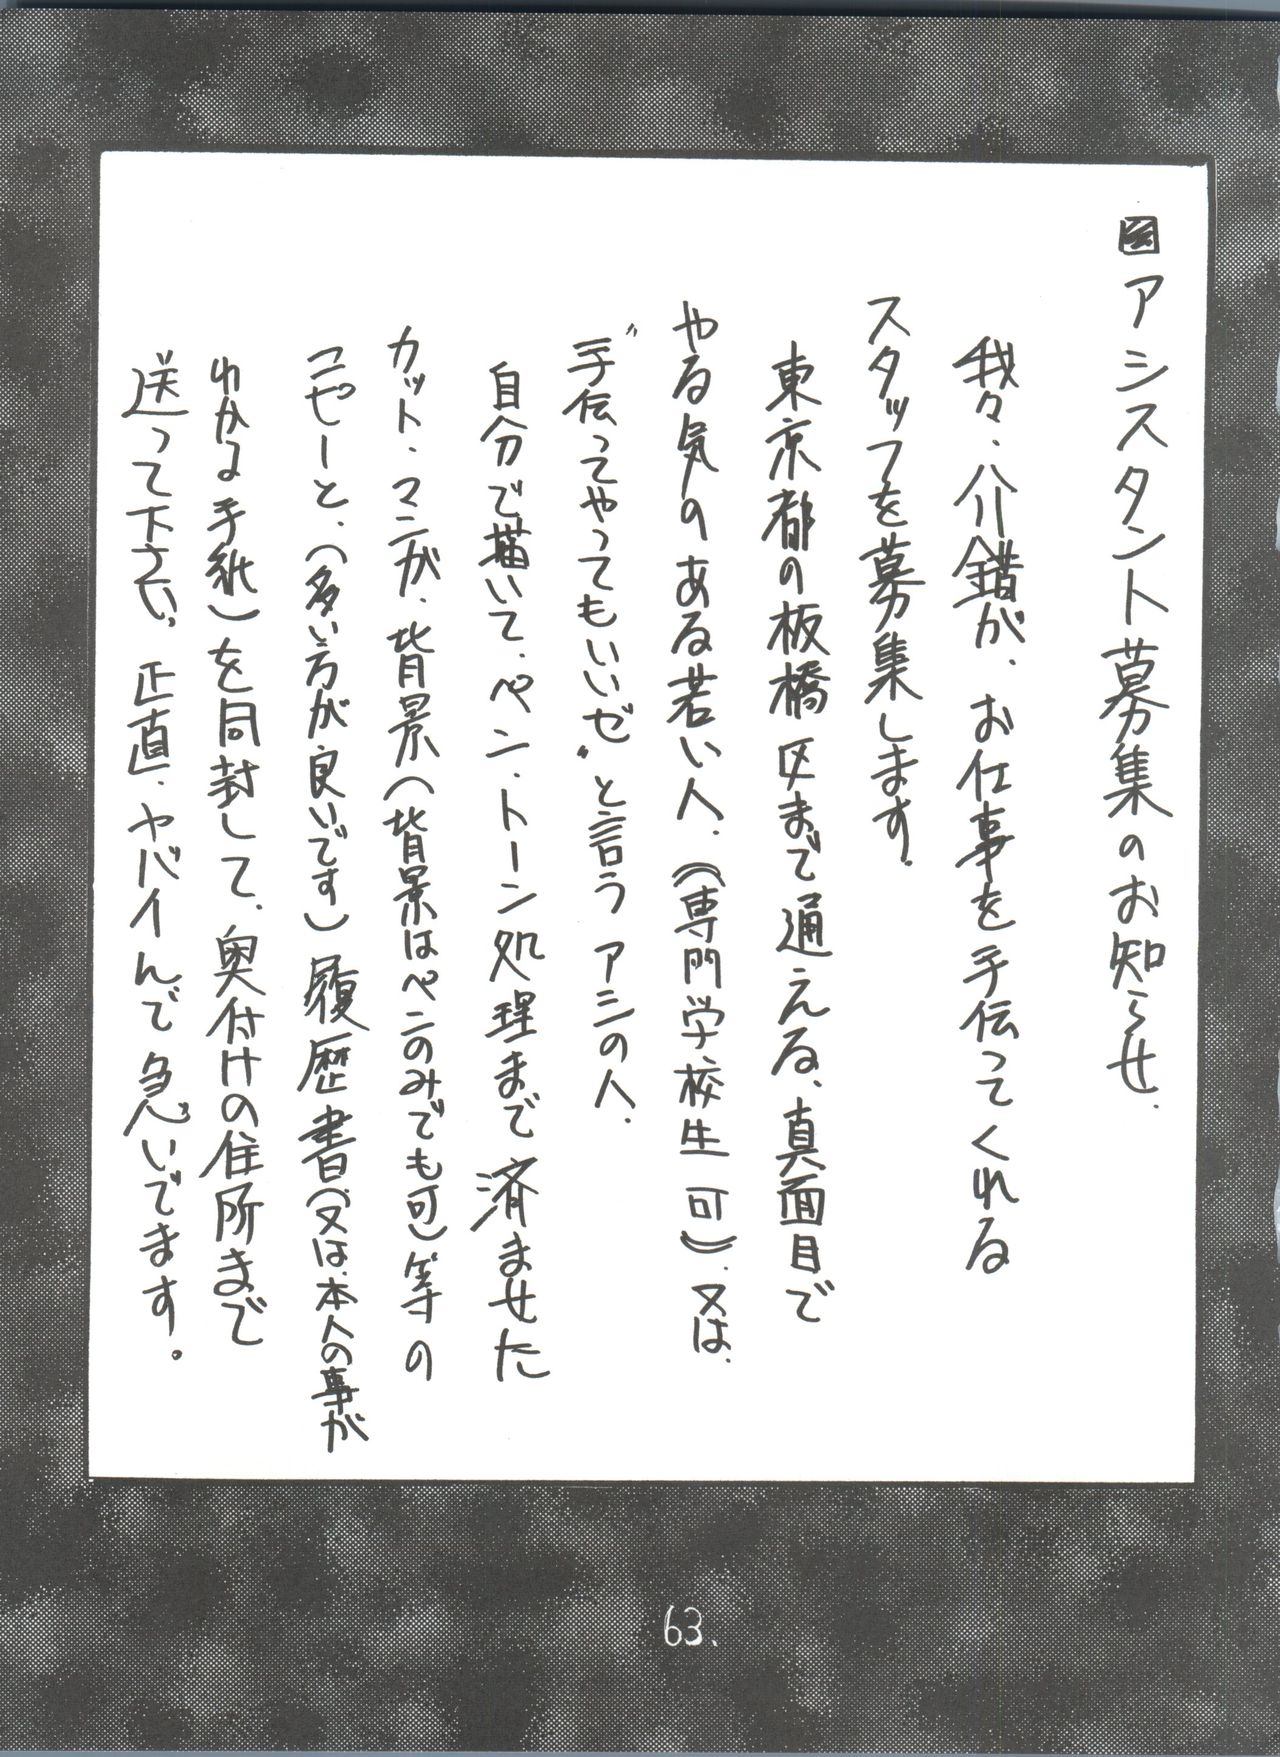 アシスタント募集のお知らせ.
我々、介錯が、お仕事を手伝ってくれる
スタッフを募集します.
東京都の板橋区まで通える、真面目で
やる気のある若い人.(専門学校生可).又は.
"手伝ってやってもいいぜ"と言うアシの人.
自分で描いて、ペン、トーン処理まで済ませた
カット、マンガ、背景(背景はペンのみでも可)等の
コピーと、(多い方が良いです)履歴書(又は、本人の事が
わかる手紙)を同封して、奥付けの住所まで
送って下さい。正直、ヤバイんで急いでます。
63.